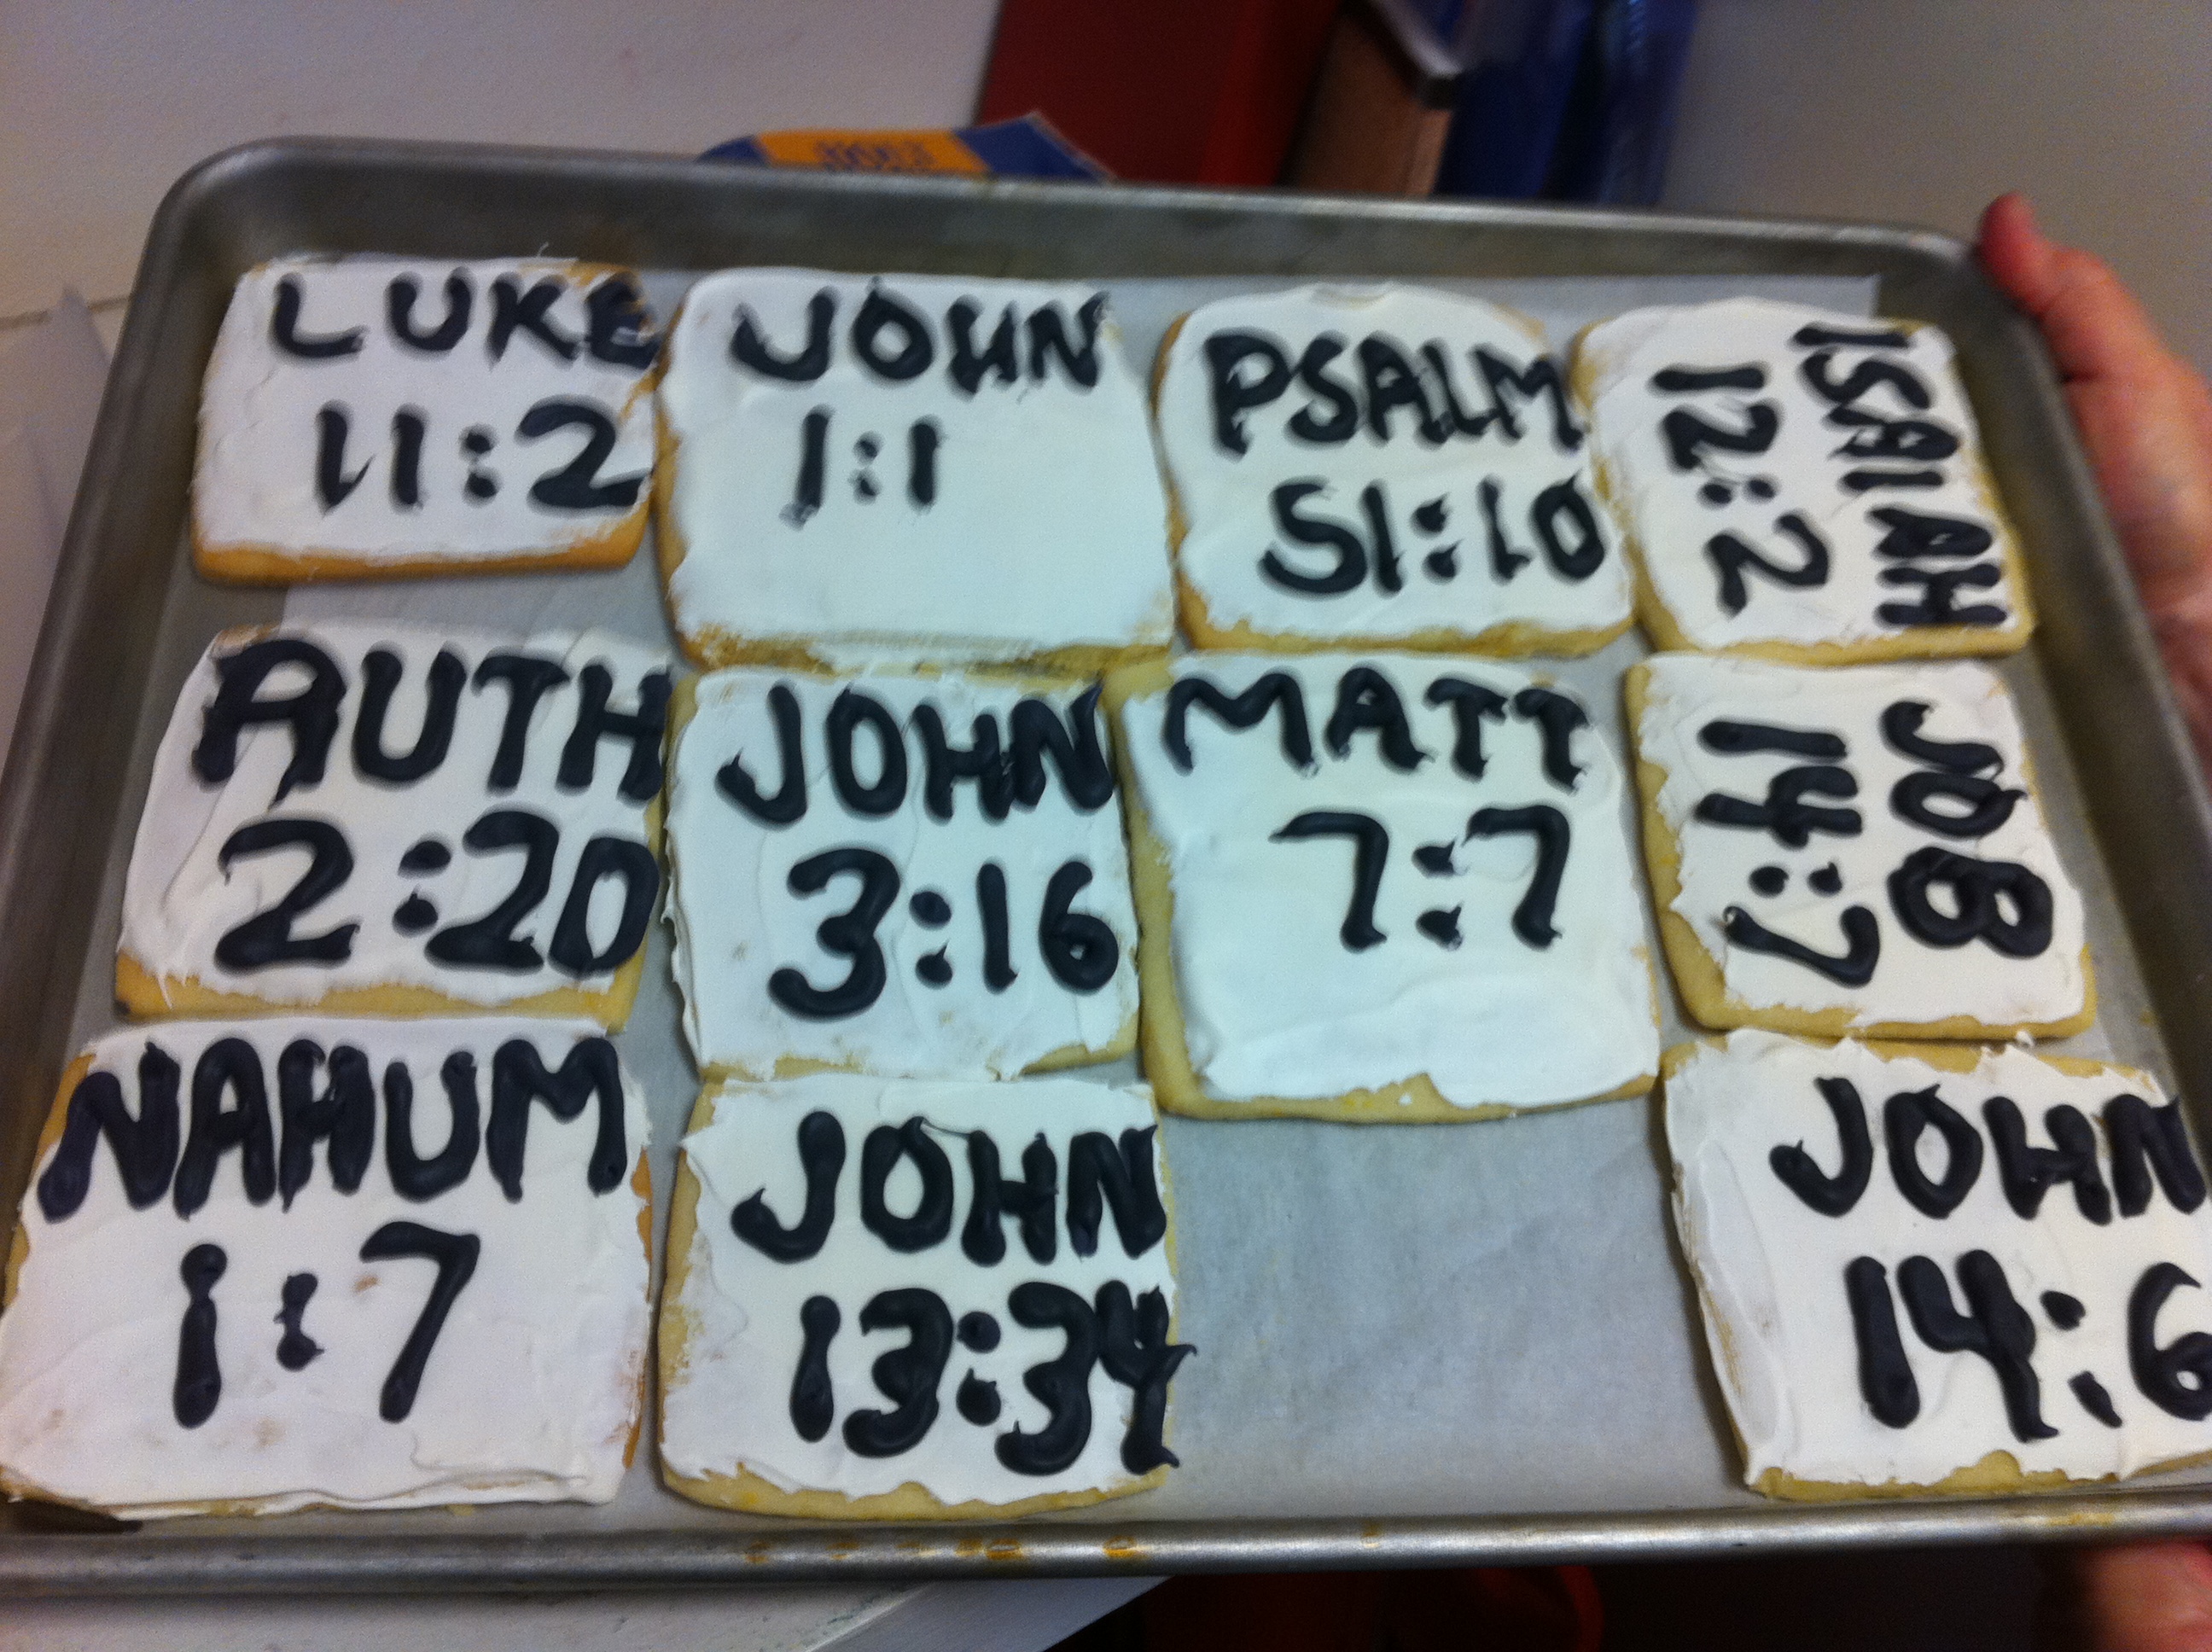 LUKE
11:2
JOHN
1:1
PSALM
51:10
ISAIAH
12:2
RUTH
2:20
JOHN
3:16
MATT
7:7
JOB
14:7
NAHUM
1:7
JOHN
13:34
JOHN
14:6